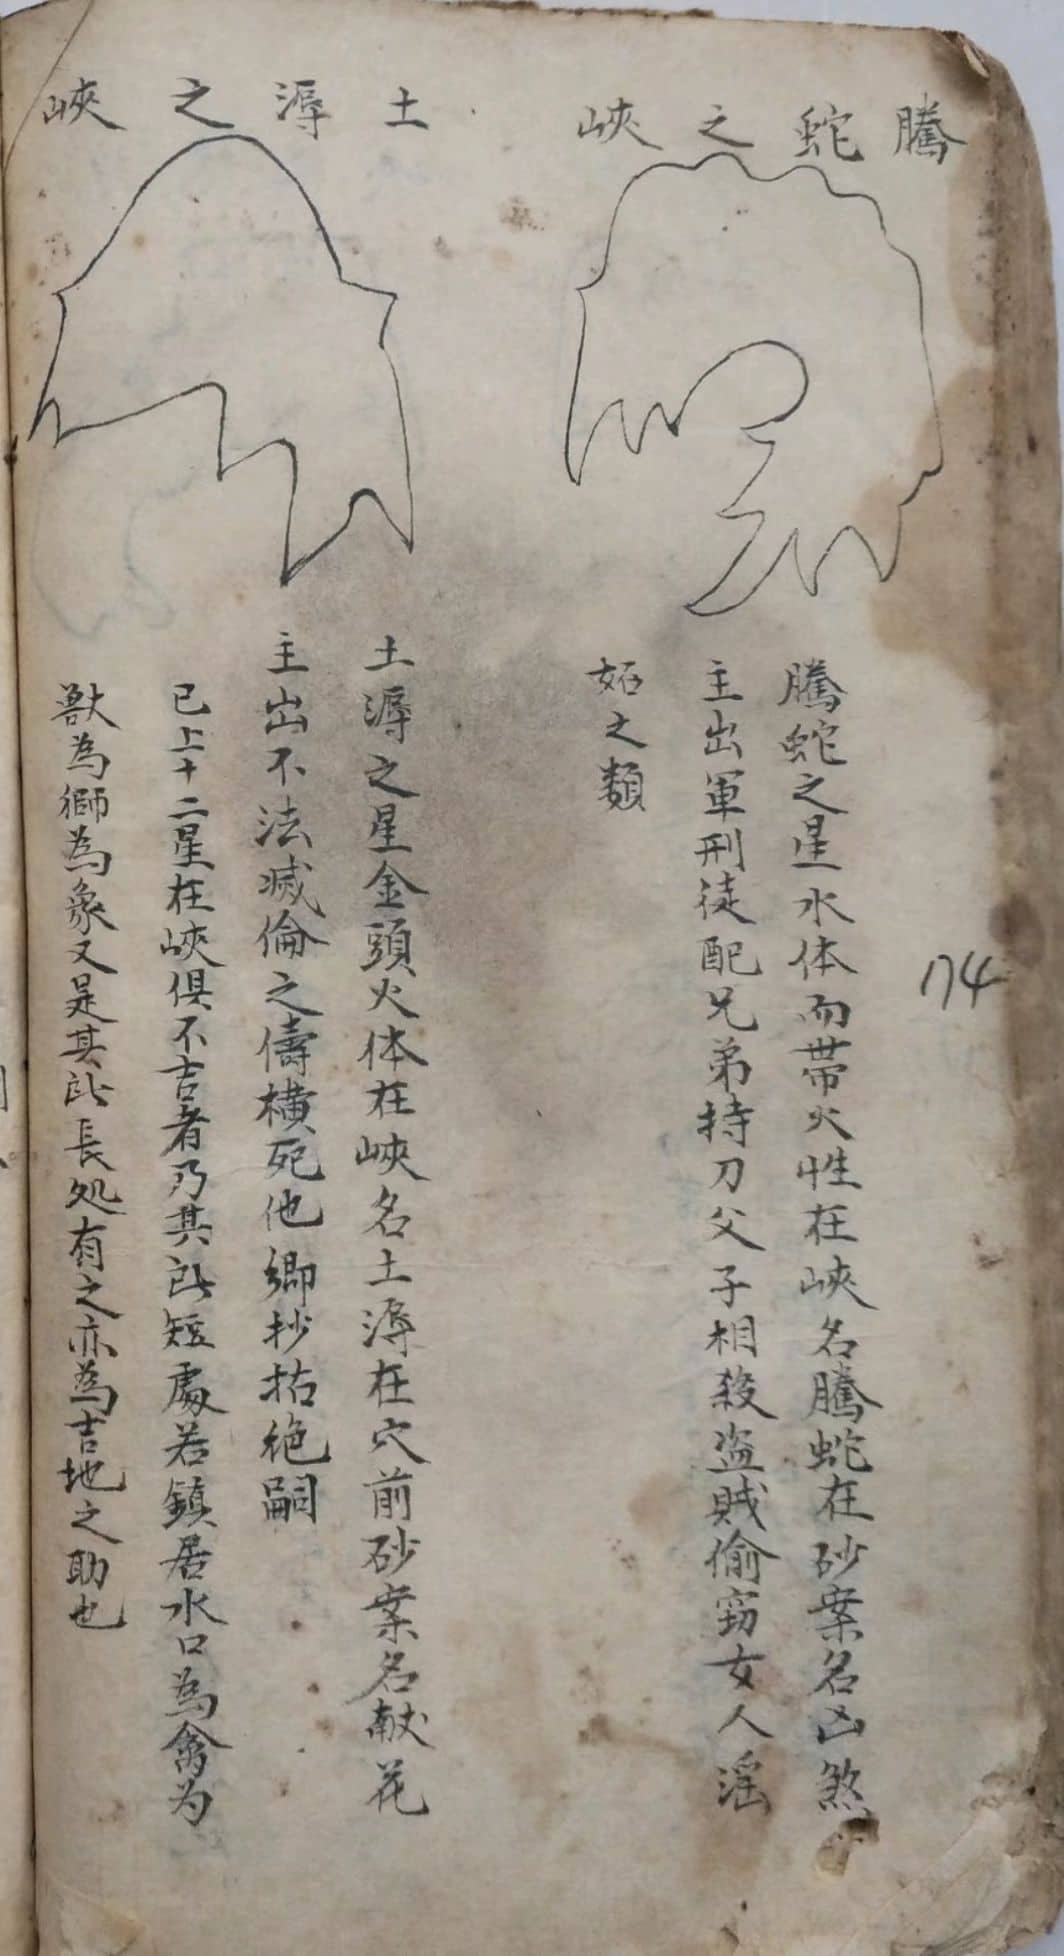 騰蛇之峽
土溽之峽
騰蛇之星水体而帶火性在峽名騰蛇在砂案名凶煞
主出軍刑徒配兄弟持刀父子相殺盗賊偷窃女人淫
妬之類
土溽之星金頭火体在峽名土溽在穴前砂案名献花
主出不法滅倫之儔橫死他鄉抄拈絶嗣
已上十二星在峽俱不吉者乃其所短處若鎮居水口為禽为
獸為獅為象又是其所長処有之亦為吉地之助也
174